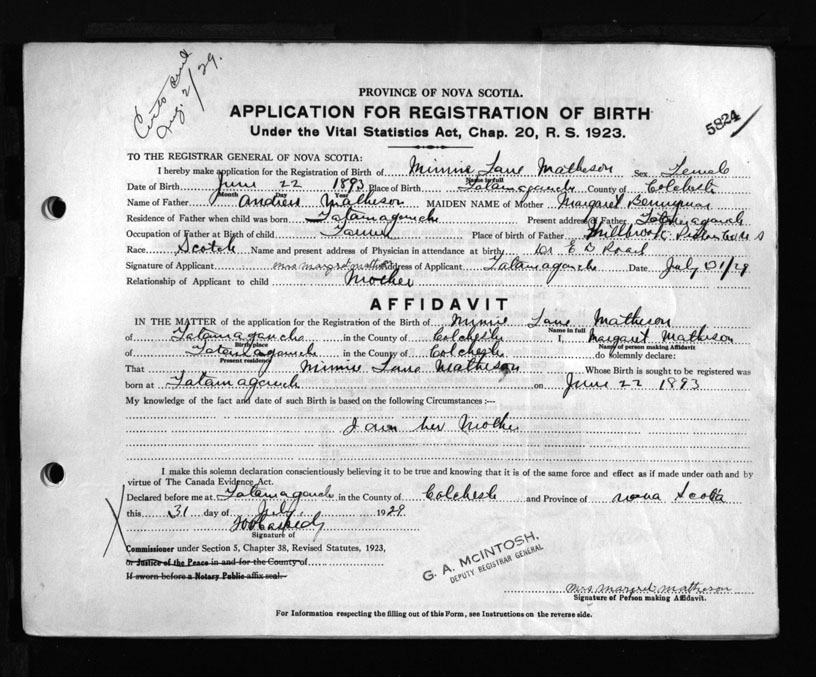 Certo sent
Aug. 2/29.
5824
PROVINCE OF NOVA SCOTIA.
APPLICATION FOR REGISTRATION OF BIRTH
Under the Vital Statistics Act, Chap. 20, R. S. 1923.
TO THE REGISTRAR GENERAL OF NOVA SCOTIA:
I hereby make application for the Registration of Birth of Minnie Jane Matheson Sex Female
Name in full
Date of Birth June 22 1893 Place of Birth Tatamagouche County of Colchester
Month Day Year
Name of Father Andrew Matheson MAIDEN NAME of Mother Margaret
Residence of Father when child was born Tatamagouche Present address of Father Tatamagouch
Occupation of Father at Birth of child Farmer Place of birth of Father Millbrook Pictou Co N S
Race Scotch Name and present address of Physician in attendance at birth Dr E D Roach
Signature of Applicant Mrs Margret Matheson Address of Applicant Tatamagouche Date July 31/29
Relationship of Applicant to child Mother
AFFIDAVIT
IN THE MATTER of the application for the Registration of the Birth of Minnie Jane Matheson
Name in full
of Tatamagouche in the County of Colchester I, Margaret Matheson
Birthplace Name of person making Affidavit
of Tatamagouche in the County of Colchester do solemnly declare:
Present residency
That Minnie Jane Matheson Whose Birth is sought to be registered was
born at Tatamagouche on June 22 1893
My knowledge of the fact and date of such Birth is based on the following Circumstances :—
I am her Mother
I make this solemn declaration conscientiously believing it to be true and knowing that it is of the same force and effect as if made under oath and by
virtue of The Canada Evidence Act.
Declared before me at Tatamagouche in the County of Colchester and Province of Nova Scotia
this 31 day of July 1929
Signature of
Commissioner under Section 5, Chapter 38, Revised Statutes, 1923,
or Justice of the Peace in and for the County of
If sworn before a Notary Public affix seal.
G. A. McINTOSH,
DEPUTY REGISTRAR GENERAL
Mrs Margret Matheson
Signature of Person making Affidavit.
For Information respecting the filling out of this Form, see Instructions on the reverse side.